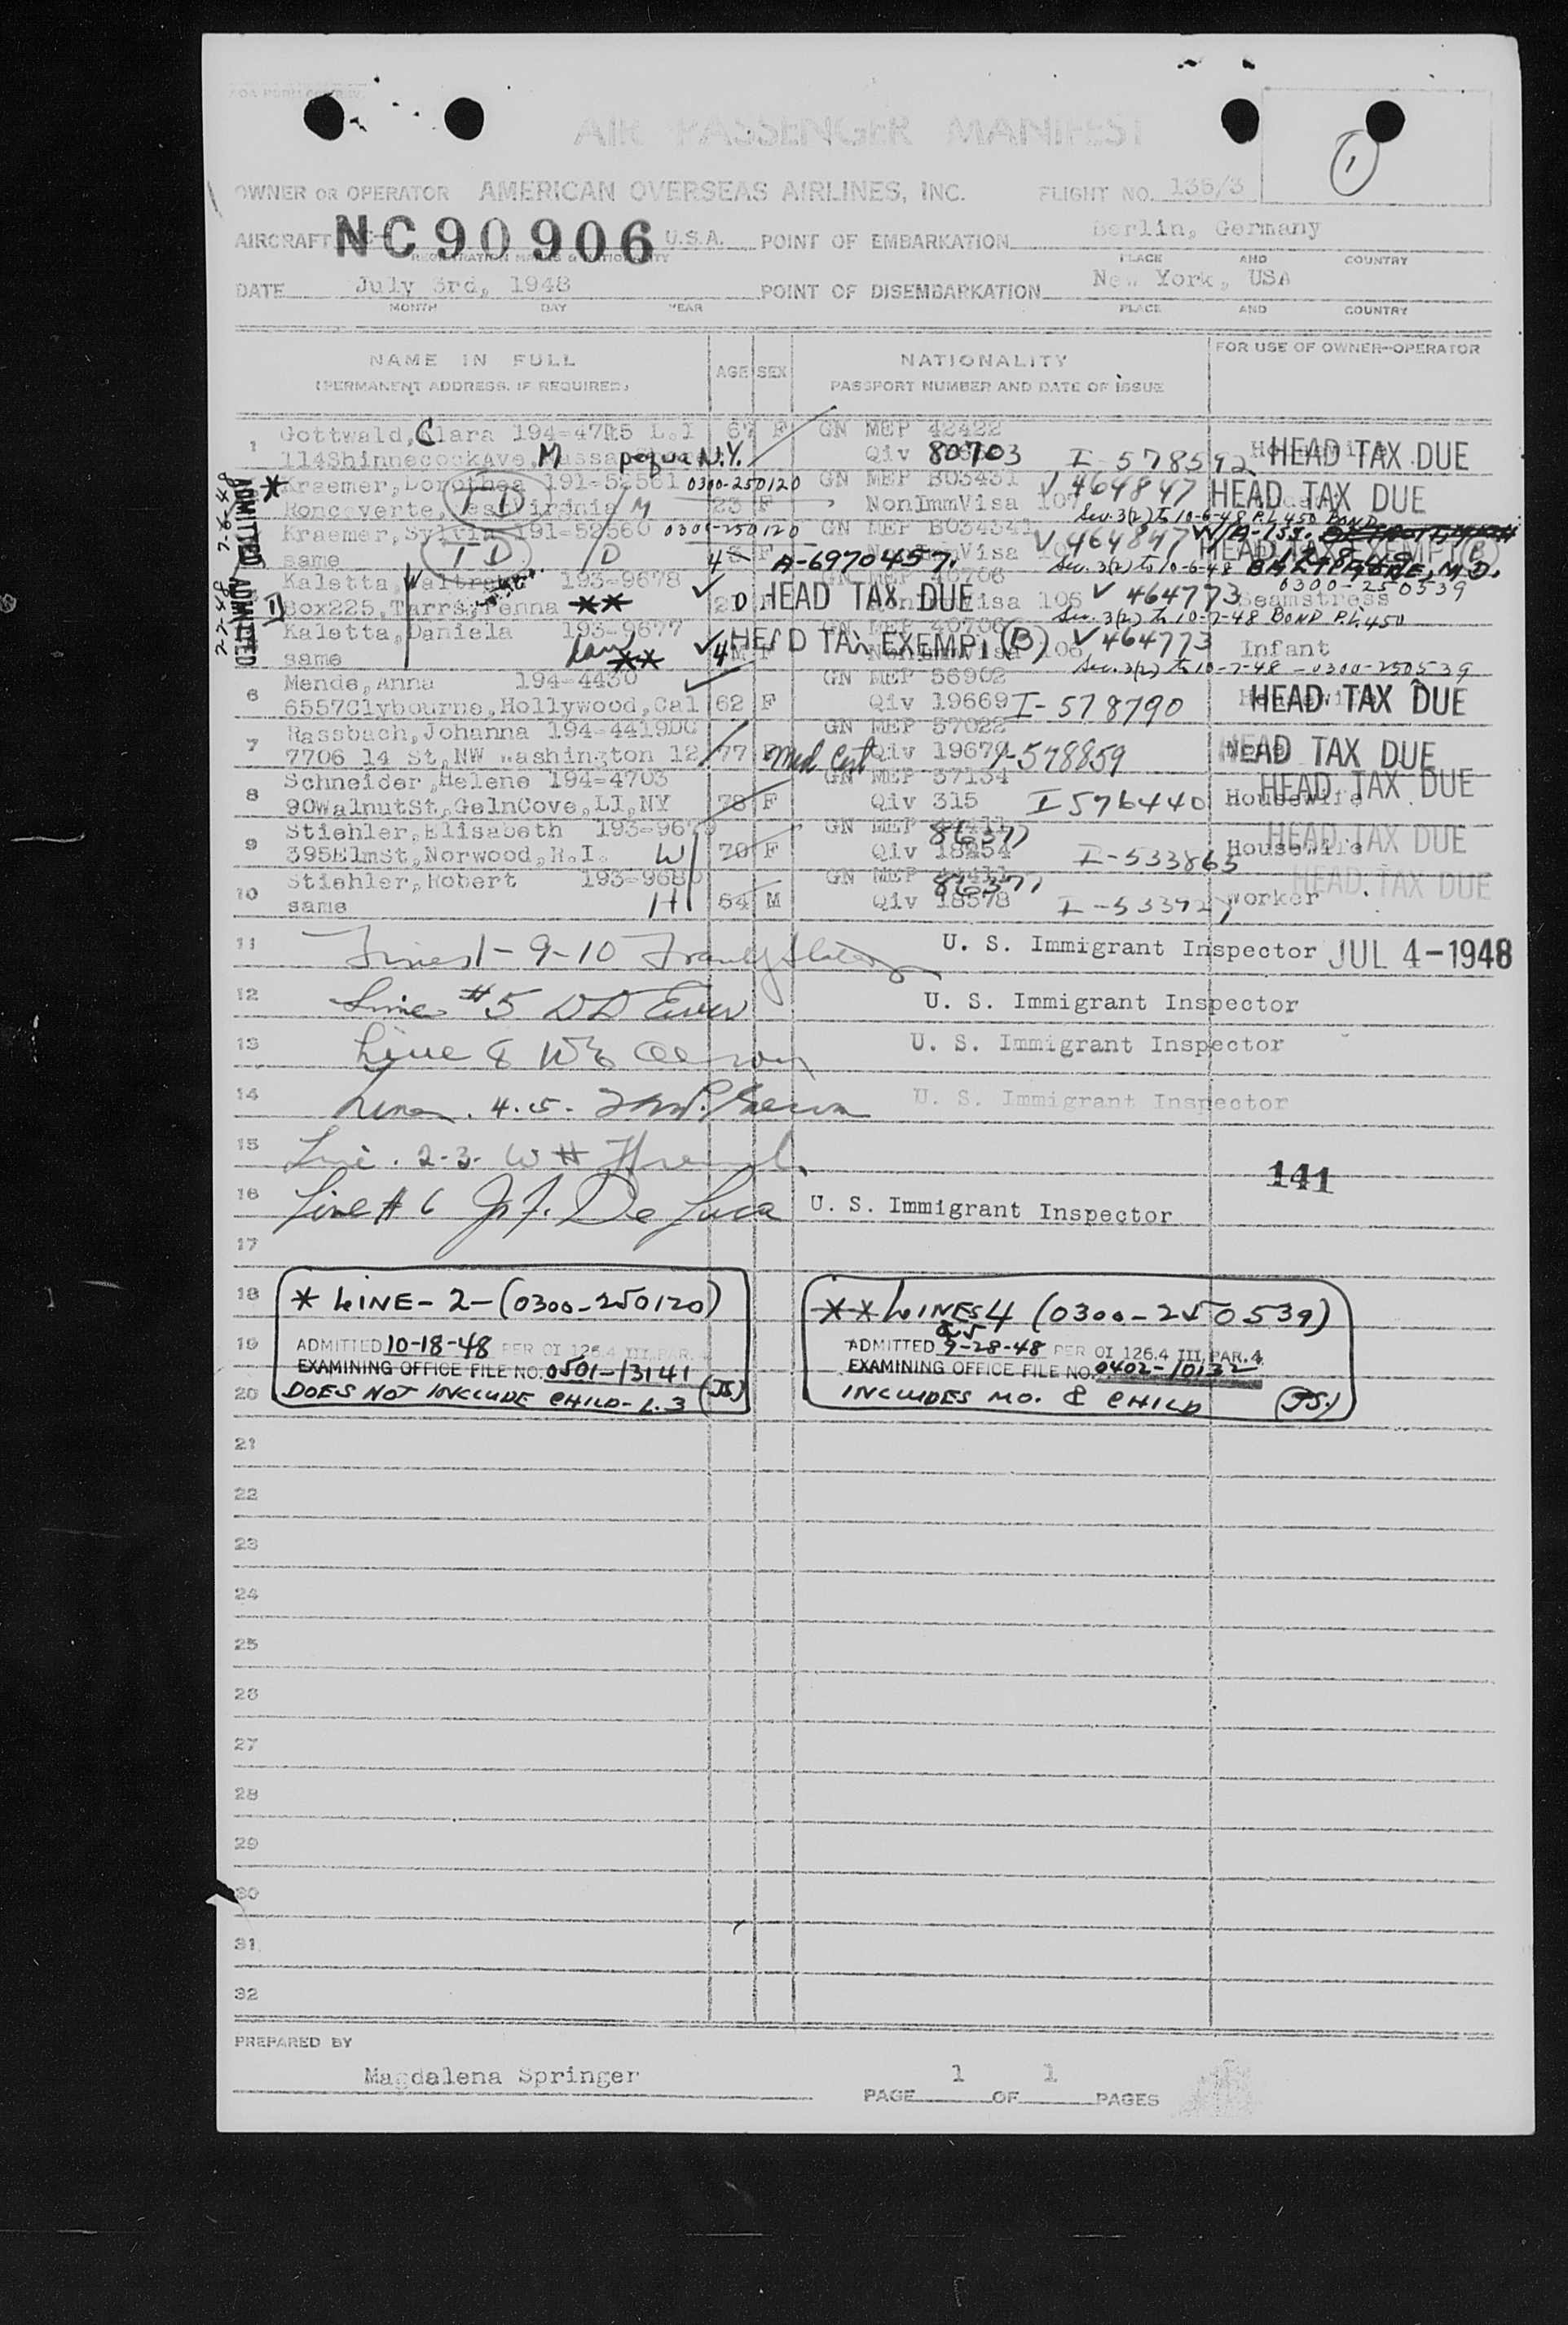 AIR PASSENGER MANIFEST
1
OWNER OR OPERATOR AMERICAN OVERSEAS AIRLINES, INC. FLIGHT NO. 135/3
AIRCRAFT NC90906 U.S.A. POINT OF EMBARKATION Berlin, Germany
REGISTRATION MARKS & NATIONALITY PLACE AND COUNTRY
DATE July 3rd, 1948 POINT OF DISEMBARKATION New York, USA
MONTH DAY YEAR PLACE AND COUNTRY
NAME IN FULL AGE SEX NATIONALITY FOR USE OF OWNER-OPERATOR
(PERMANENT ADDRESS, IF REQUIRED) PASSPORT NUMBER AND DATE OF ISSUE
1 Gottwald, Clara 194-4715 L.I 67 F GN MEP 42422
114ShinnecockAve, Massapequa N.Y. Qiv 80703 I-578592 HEAD TAX DUE
Kraemer, Dorothea 191-52561 0300-250120 GN MEP B03431 464847 HEAD TAX DUE
Ronceverte, WestVirginia M TD 23 F NonImmVisa 107 Sec. 3(2) to 10-6-48 P.L. 450 BOND
Kraemer, Sylvia 191-52560 0300-250120 GN MEP B034341 464847 W/A-153. HEAD TAX EXEMPT (B)
same TD D 4 F A-6970457. Visa Sec. 3(2) to 10-6-48 BALTIMORE, M.D.
Kaletta, Waltraut 193-9678 GN MEP 40706 0300-250539
Box225, Tarrs, Penna ** HEAD TAX DUE Visa 105 464773 Seamstress
Sec. 3(2) to 10-7-48 BOND P.L. 450
Kaletta, Daniela 193-9677 GN MEP 40706
same ** 4 F HEAD TAX EXEMPT (B) NonImmVisa 106 464773 Infant
Sec. 3(2) to 10-7-48 - 0300-250539
6 Mende, Anna 194-4430 GN MEP 56902
6557Clybourne, Hollywood, Cal 62 F Qiv 19669 I-578790 HEAD TAX DUE
7 Rassbach, Johanna 194-4419DC GN MEP 57022
7706 14 St, NW Washington 12 77 F Med Cert Qiv 19679 I-578859 HEAD TAX DUE
8 Schneider, Helene 194-4703 GN MEP 37134 HEAD TAX DUE
90WalnutSt, GelnCove, LI, NY 78 F Qiv 315 I 576440 Housewife
9 Stiehler, Elisabeth 193-9679 GN MEP 86377 HEAD TAX DUE
395ElmSt, Norwood, R.I. W 70 F Qiv 18454 I-533865 Housewife
10 Stiehler, Robert 193-9680 GN MEP 86377 HEAD TAX DUE
same H 64 M Qiv 18578 I-533927 worker
ADMITTED 7-6-48
ADMITTED 7-7-48
11 Lines 1-9-10 U. S. Immigrant Inspector JUL 4-1948
12 Line #5 U. S. Immigrant Inspector
13 Line 8 U. S. Immigrant Inspector
14 Lines. 4.5. U. S. Immigrant Inspector
15 Line. 2-3. W H
141
16 Line # 6 De Luca U. S. Immigrant Inspector
17
18 * LINE-2-(0300-250120)
19 ADMITTED 10-18-48 PER OI 126.4 III, PAR. 4
EXAMINING OFFICE FILE NO. 0501-13141
20 DOES NOT INCLUDE CHILD-L.3 (JS)
** LINES 4 & 5 (0300-250539)
ADMITTED 9-28-48 PER OI 126.4 III, PAR. 4
EXAMINING OFFICE FILE NO. 0402-10132
INCLUDES MO. & CHILD (JS.)
21
22
23
24
25
26
27
28
29
30
31
32
PREPARED BY
Magdalena Springer
PAGE 1 OF 1 PAGES